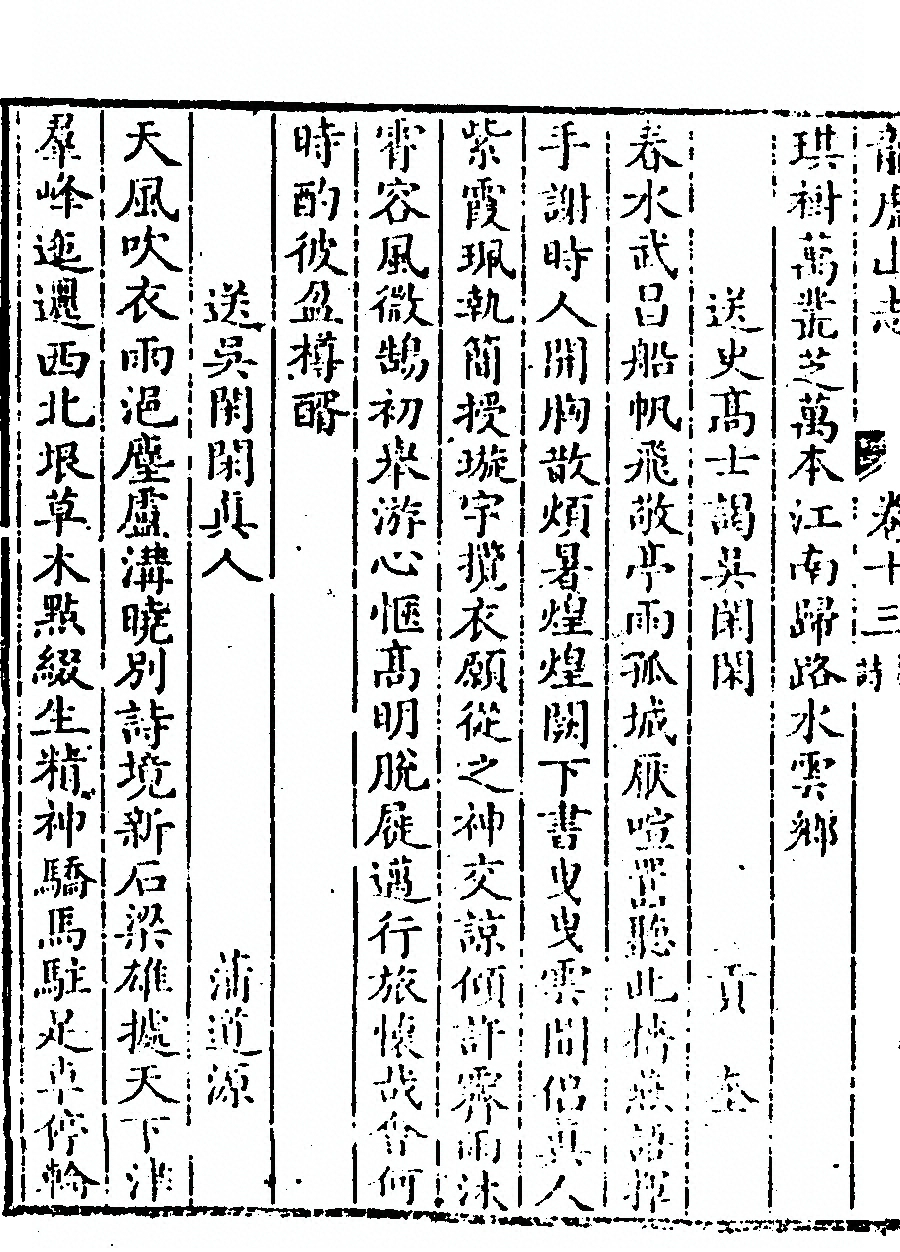 龍虎山志　卷十三　詩
琪樹萬叢芝萬本江南歸路水雲鄉
送史高士謁吳閑閑　貢奎
春水武昌船帆飛敬亭雨孤城厭喧嚚聽此情無語揮
手謝時人開胸散煩暑煌煌闕下書曳曳雲間侶真人
紫霞珮執簡授璇宇攬衣願從之神交諒傾許霽雨沐
霄容風微鵠初舉游心愜高明脫屣邁行旅懷哉會何
時酌彼盈樽醑
送吳閑閑真人　蒲道源
天風吹衣雨浥塵盧溝曉別詩境新石梁雄據天下津
羣峰迤邐西北垠草木點綴生精神驕馬駐足車停輪